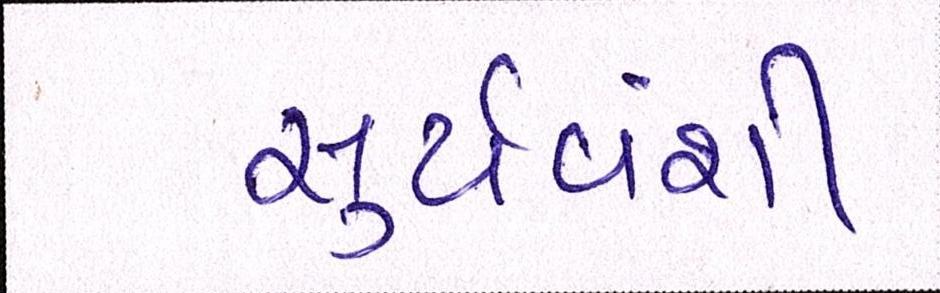 સુર્યવંશી